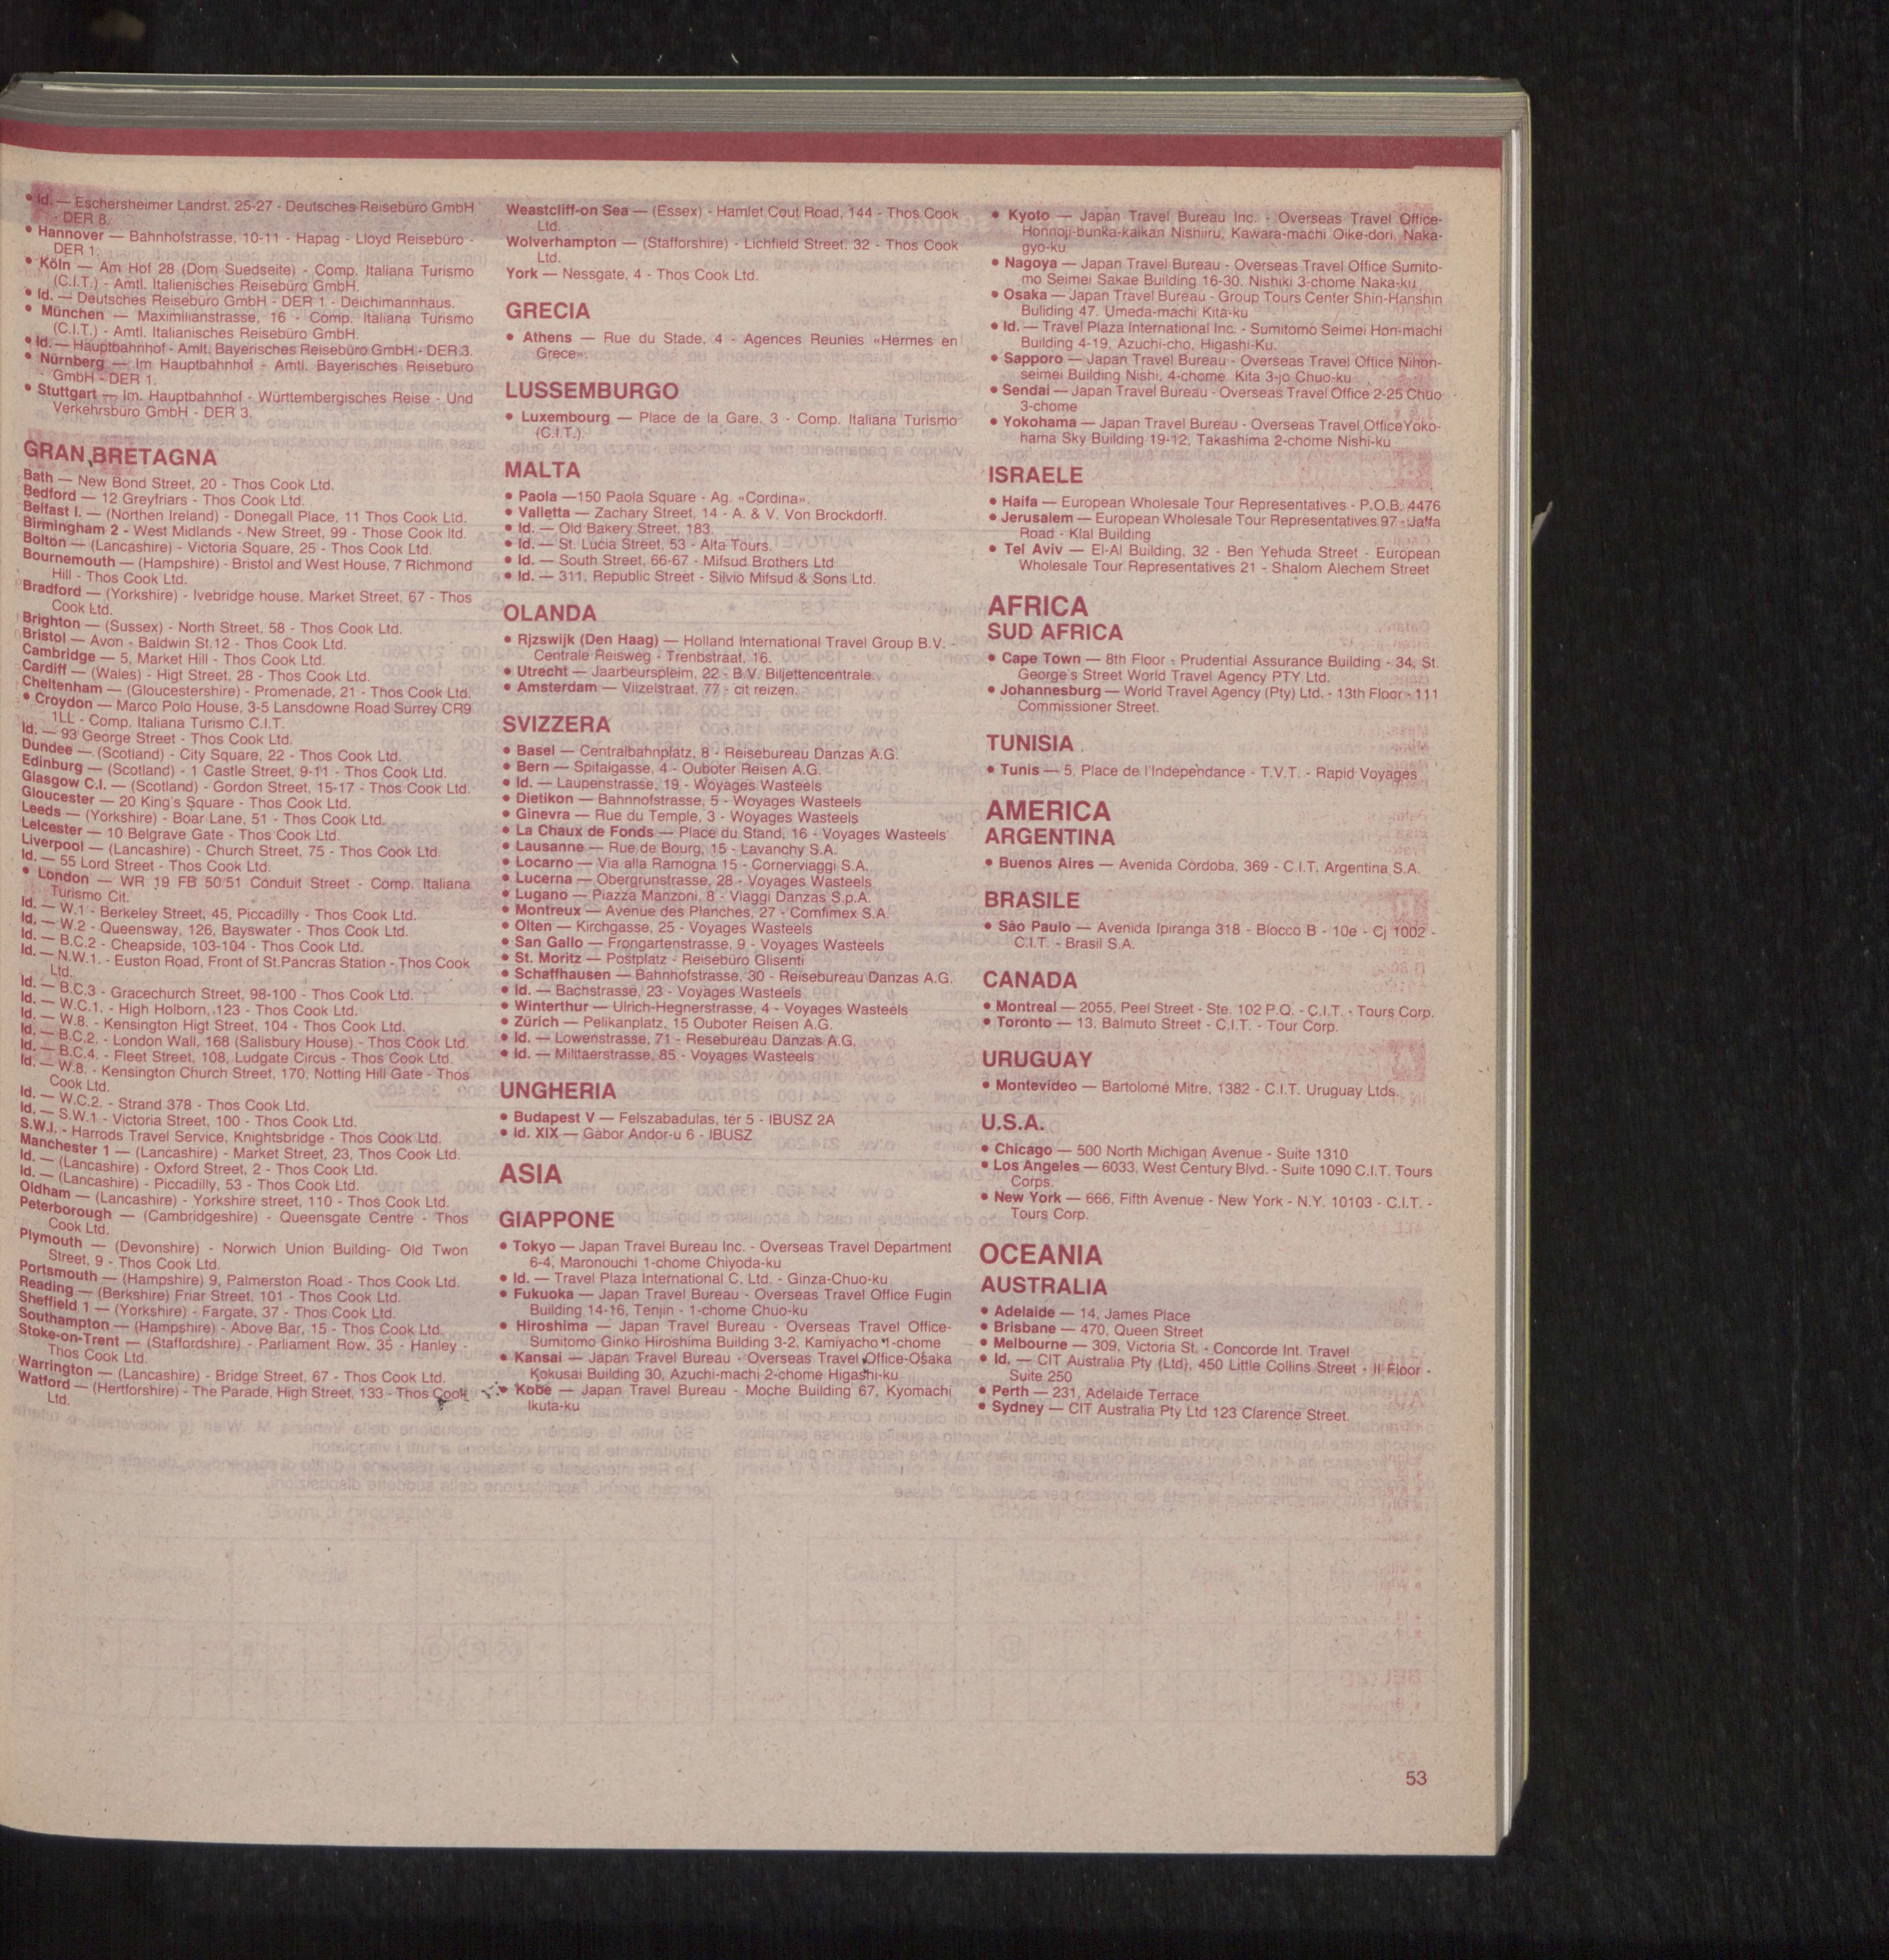 • Id. — Eschersheimer Landrst. 25-27 - Deutsches Reisebüro GmbH
- DER 8.
• Hannover — Bahnhofstrasse, 10-11 - Hapag - Lloyd Reisebüro -
DER 1.
• Köln — Am Hof 28 (Dom Suedseite) - Comp. Italiana Turismo
(C.I.T.) - Amtl. Italienisches Reisebüro GmbH.
• Id. — Deutsches Reisebüro GmbH - DER 1 - Deichimannhaus.
• München — Maximilianstrasse, 16 - Comp. Italiana Turismo
(C.I.T.) - Amtl. Italianisches Reisebüro GmbH.
• Id. — Hauptbahnhof - Amlt. Bayerisches Reisebüro GmbH - DER 3.
• Nürnberg — Im Hauptbahnhof - Amtl. Bayerisches Reisebüro
GmbH - DER 1.
• Stuttgart — Im. Hauptbahnhof - Württembergisches Reise - Und
Verkehrsbüro GmbH - DER 3.
GRAN BRETAGNA
Bath — New Bond Street, 20 - Thos Cook Ltd.
Bedford — 12 Greyfriars - Thos Cook Ltd.
Belfast I. — (Northen Ireland) - Donegall Place, 11 Thos Cook Ltd.
Birmingham 2 - West Midlands - New Street, 99 - Those Cook ltd.
Bolton — (Lancashire) - Victoria Square, 25 - Thos Cook Ltd.
Bournemouth — (Hampshire) - Bristol and West House, 7 Richmond
Hill - Thos Cook Ltd.
Bradford — (Yorkshire) - Ivebridge house, Market Street, 67 - Thos
Cook Ltd.
Brighton — (Sussex) - North Street, 58 - Thos Cook Ltd.
Bristol — Avon - Baldwin St.12 - Thos Cook Ltd.
Cambridge — 5, Market Hill - Thos Cook Ltd.
Cardiff — (Wales) - Higt Street, 28 - Thos Cook Ltd.
Cheltenham — (Gloucestershire) - Promenade, 21 - Thos Cook Ltd.
• Croydon — Marco Polo House, 3-5 Lansdowne Road Surrey CR9
1LL - Comp. Italiana Turismo C.I.T.
Id. — 93 George Street - Thos Cook Ltd.
Dundee — (Scotland) - City Square, 22 - Thos Cook Ltd.
Edinburg — (Scotland) - 1 Castle Street, 9-11 - Thos Cook Ltd.
Glasgow C.I. — (Scotland) - Gordon Street, 15-17 - Thos Cook Ltd.
Gloucester — 20 King's Square - Thos Cook Ltd.
Leeds — (Yorkshire) - Boar Lane, 51 - Thos Cook Ltd.
Leicester — 10 Belgrave Gate - Thos Cook Ltd.
Liverpool — (Lancashire) - Church Street, 75 - Thos Cook Ltd.
Id. — 55 Lord Street - Thos Cook Ltd.
• London — WR 19 FB 50/51 Conduit Street - Comp. Italiana
Turismo Cit.
Id. — W.1 - Berkeley Street, 45, Piccadilly - Thos Cook Ltd.
Id. — W.2 - Queensway, 126, Bayswater - Thos Cook Ltd.
Id. — B.C.2 - Cheapside, 103-104 - Thos Cook Ltd.
Id. — N.W.1. - Euston Road, Front of St.Pancras Station - Thos Cook
Ltd.
Id. — B.C.3 - Gracechurch Street, 98-100 - Thos Cook Ltd.
Id. — W.C.1. - High Holborn, 123 - Thos Cook Ltd.
Id. — W.8. - Kensington Higt Street, 104 - Thos Cook Ltd.
Id. — B.C.2. - London Wall, 168 (Salisbury House) - Thos Cook Ltd.
Id. — B.C.4. - Fleet Street, 108, Ludgate Circus - Thos Cook Ltd.
Id. — W.8. - Kensington Church Street, 170, Notting Hill Gate - Thos
Cook Ltd.
Id. — W.C.2. - Strand 378 - Thos Cook Ltd.
Id. — S.W.1 - Victoria Street, 100 - Thos Cook Ltd.
S.W.I. - Harrods Travel Service, Knightsbridge - Thos Cook Ltd.
Manchester 1 — (Lancashire) - Market Street, 23, Thos Cook Ltd.
Id. — (Lancashire) - Oxford Street, 2 - Thos Cook Ltd.
Id. — (Lancashire) - Piccadilly, 53 - Thos Cook Ltd.
Oldham — (Lancashire) - Yorkshire street, 110 - Thos Cook Ltd.
Peterborough — (Cambridgeshire) - Queensgate Centre - Thos
Cook Ltd.
Plymouth — (Devonshire) - Norwich Union Building- Old Twon
Street, 9 - Thos Cook Ltd.
Portsmouth — (Hampshire) 9, Palmerston Road - Thos Cook Ltd.
Reading — (Berkshire) Friar Street, 101 - Thos Cook Ltd.
Sheffield 1 — (Yorkshire) - Fargate, 37 - Thos Cook Ltd.
Southampton — (Hampshire) - Above Bar, 15 - Thos Cook Ltd.
Stoke-on-Trent — (Staffordshire) - Parliament Row, 35 - Hanley -
Thos Cook Ltd.
Warrington — (Lancashire) - Bridge Street, 67 - Thos Cook Ltd.
Watford — (Hertforshire) - The Parade, High Street, 133 - Thos Cook
Ltd.
Weastcliff-on Sea — (Essex) - Hamlet Cout Road, 144 - Thos Cook
Ltd.
Wolverhampton — (Stafforshire) - Lichfield Street, 32 - Thos Cook
Ltd.
York — Nessgate, 4 - Thos Cook Ltd.
GRECIA
• Athens — Rue du Stade, 4 - Agences Reunies «Hermes en
Grece».
LUSSEMBURGO
• Luxembourg — Place de la Gare, 3 - Comp. Italiana Turismo
(C.I.T.).
MALTA
• Paola —150 Paola Square - Ag. «Cordina».
• Valletta — Zachary Street, 14 - A. & V. Von Brockdorff.
• Id. — Old Bakery Street, 183.
• Id. — St. Lucia Street, 53 - Alta Tours.
• Id. — South Street, 66-67 - Mifsud Brothers Ltd
• Id. — 311, Republic Street - Silvio Mifsud & Sons Ltd.
OLANDA
• Rjzswijk (Den Haag) — Holland International Travel Group B.V. -
Centrale Reisweg - Trenbstraat, 16.
• Utrecht — Jaarbeurspleim, 22 - B.V. Biljettencentrale.
• Amsterdam — Viizelstraat, 77 - cit reizen.
SVIZZERA
• Basel — Centralbahnplatz, 8 - Reisebureau Danzas A.G.
• Bern — Spitalgasse, 4 - Ouboter Reisen A.G.
• Id. — Laupenstrasse, 19 - Woyages Wasteels
• Dietikon — Bahnnofstrasse, 5 - Woyages Wasteels
• Ginevra — Rue du Temple, 3 - Woyages Wasteels
• La Chaux de Fonds — Place du Stand, 16 - Voyages Wasteels
• Lausanne — Rue de Bourg, 15 - Lavanchy S.A.
• Locarno — Via alla Ramogna 15 - Cornerviaggi S.A.
• Lucerna — Obergrunstrasse, 28 - Voyages Wasteels
• Lugano — Piazza Manzoni, 8 - Viaggi Danzas S.p.A.
• Montreux — Avenue des Planches, 27 - Comfimex S.A.
• Olten — Kirchgasse, 25 - Voyages Wasteels
• San Gallo — Frongartenstrasse, 9 - Voyages Wasteels
• St. Moritz — Postplatz - Reisebüro Glisenti
• Schaffhausen — Bahnhofstrasse, 30 - Reisebureau Danzas A.G.
• Id. — Bachstrasse, 23 - Voyages Wasteels
• Winterthur — Ulrich-Hegnerstrasse, 4 - Voyages Wasteels
• Zürich — Pelikanplatz, 15 Ouboter Reisen A.G.
• Id. — Lowenstrasse, 71 - Resebureau Danzas A.G.
• Id. — Militaerstrasse, 85 - Voyages Wasteels
UNGHERIA
• Budapest V — Felszabadulas, tér 5 - IBUSZ 2A
• Id. XIX — Gàbor Andor-u 6 - IBUSZ
ASIA
GIAPPONE
• Tokyo — Japan Travel Bureau Inc. - Overseas Travel Department
6-4, Maronouchi 1-chome Chiyoda-ku
• Id. — Travel Plaza International C. Ltd. - Ginza-Chuo-ku
• Fukuoka — Japan Travel Bureau - Overseas Travel Office Fugin
Building 14-16, Tenjin - 1-chome Chuo-ku
• Hiroshima — Japan Travel Bureau - Overseas Travel Office-
Sumitomo Ginko Hiroshima Building 3-2, Kamiyacho 1-chome
• Kansai — Japan Travel Bureau - Overseas Travel Office-Osaka
Kokusai Building 30, Azuchi-machi 2-chome Higashi-ku
• Kobe — Japan Travel Bureau - Moche Building 67, Kyomachi
Ikuta-ku
• Kyoto — Japan Travel Bureau Inc. - Overseas Travel Office-
Honnoji-bunka-kaikan Nishiiru, Kawara-machi Oike-dori, Naka-
gyo-ku
• Nagoya — Japan Travel Bureau - Overseas Travel Office Sumito-
mo Seimei Sakae Building 16-30. Nishiki 3-chome Naka-ku
• Osaka — Japan Travel Bureau - Group Tours Center Shin-Hanshin
Buliding 47. Umeda-machi Kita-ku
• Id. — Travel Plaza International Inc. - Sumitomo Seimei Hon-machi
Building 4-19, Azuchi-cho, Higashi-Ku.
• Sapporo — Japan Travel Bureau - Overseas Travel Office Nihon-
seimei Building Nishi, 4-chome Kita 3-jo Chuo-ku
• Sendai — Japan Travel Bureau - Overseas Travel Office 2-25 Chuo
3-chome
• Yokohama — Japan Travel Bureau - Overseas Travel OfficeYoko-
hama Sky Building 19-12, Takashima 2-chome Nishi-ku
ISRAELE
• Haifa — European Wholesale Tour Representatives - P.O.B. 4476
• Jerusalem — European Wholesale Tour Representatives 97 - Jaffa
Road - Klal Building
• Tel Aviv — El-Al Building, 32 - Ben Yehuda Street - European
Wholesale Tour Representatives 21 - Shalom Alechem Street
AFRICA
SUD AFRICA
• Cape Town — 8th Floor - Prudential Assurance Building - 34, St.
George's Street World Travel Agency PTY Ltd.
• Johannesburg — World Travel Agency (Pty) Ltd. - 13th Floor - 111
Commissioner Street.
TUNISIA
• Tunis — 5, Place de l'Independance - T.V.T. - Rapid Voyages
AMERICA
ARGENTINA
• Buenos Aires — Avenida Còrdoba, 369 - C.I.T. Argentina S.A.
BRASILE
• São Paulo — Avenida Ipiranga 318 - Blocco B - 10e - Cj 1002 -
C.I.T. - Brasil S.A.
CANADA
• Montreal — 2055, Peel Street - Ste. 102 P.Q. - C.I.T. - Tours Corp.
• Toronto — 13, Balmuto Street - C.I.T. - Tour Corp.
URUGUAY
• Montevideo — Bartolomé Mitre, 1382 - C.I.T. Uruguay Ltds.
U.S.A.
• Chicago — 500 North Michigan Avenue - Suite 1310
• Los Angeles — 6033, West Century Blvd. - Suite 1090 C.I.T. Tours
Corps.
• New York — 666, Fifth Avenue - New York - N.Y. 10103 - C.I.T. -
Tours Corp.
OCEANIA
AUSTRALIA
• Adelaide — 14, James Place
• Brisbane — 470, Queen Street
• Melbourne — 309, Victoria St. - Concorde Int. Travel
• Id. — CIT Australia Pty (Ltd), 450 Little Collins Street - II Floor -
Suite 250
• Perth — 231, Adelaide Terrace
• Sydney — CIT Australia Pty Ltd 123 Clarence Street.
53